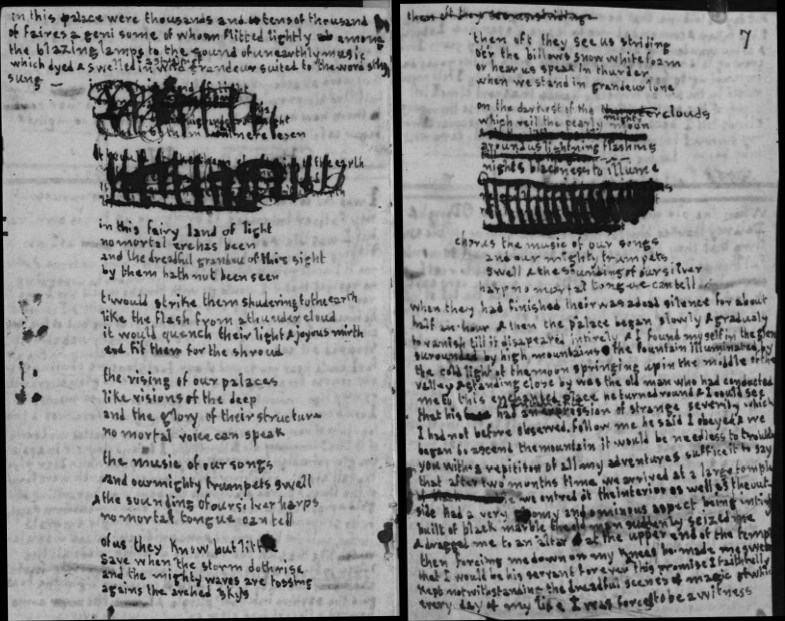 in this palace were thousands and tens of thousand
of faires & geni some of whom flitted lightly among
the blazing lamps to the sound of unearthly music
which dyed & swelled in wild grandeur suited to the words they
sung —
in this fairy land of light
no mortal ere has been
and the dreadful grandeur of this sight
by them hath not been seen
twould strike them shudering to the earth
like the flash from a thunder cloud
it would quench their light & joyous mirth
end fit them for the shroud
the rising of our palaces
like visions of the deep
and the glory of their structure
no mortal voice can speak
the music of our songs
and our mighty trumpets swell
& the sounding of our silver harps
no mortal tongue can tell
of us they know but little
save when the storm doth rise
and the mighty waves are tossing
agains the arched skys
then oft they see us striding
7
then oft they see us striding
oer the billows snow white foam
or hear us speak in thunder
when we stand in grandeur lone
on the darkest of the mighty clouds
which veil the pearly moon
around us lightning flashing
nights blackness to illume
chorus the music of our songs
and our mighty trumpets
swell & the sounding of our silver
harp no mortal tongue can tell
when they had finished their was a dead silence for about
half an-hour & then the palace began slowly & gradualy
to vanish till it disapeared intirely & I found myself in the glen
surounded by high mountains the fountain illuminated by
the cold light of the moon springing up in the middle of the
valley & standing close by was the old man who had conducted
me to this enchanted place he turned round & I could see
that his had an expression of strange severity which
I had not before observed. follow me he said I obeyed & we
began to ascend the mountain it would be needless to trouble
you with a repitition of all my adventures suffice it to say
that after two months time we arrived at a large temple
we entred it the interior as well as the out
side had a very gloomy and ominous aspect being intirly
built of black marble the old man suddenly seized me
& dragged me to an altar at the upper end of the temple
then forcing me down on my knees he made me swear
that I would be his servant for ever this promise I faithfully
kept notwithstanding the dreadful scenes of magic of which
every day of my life I was forced to be a witness